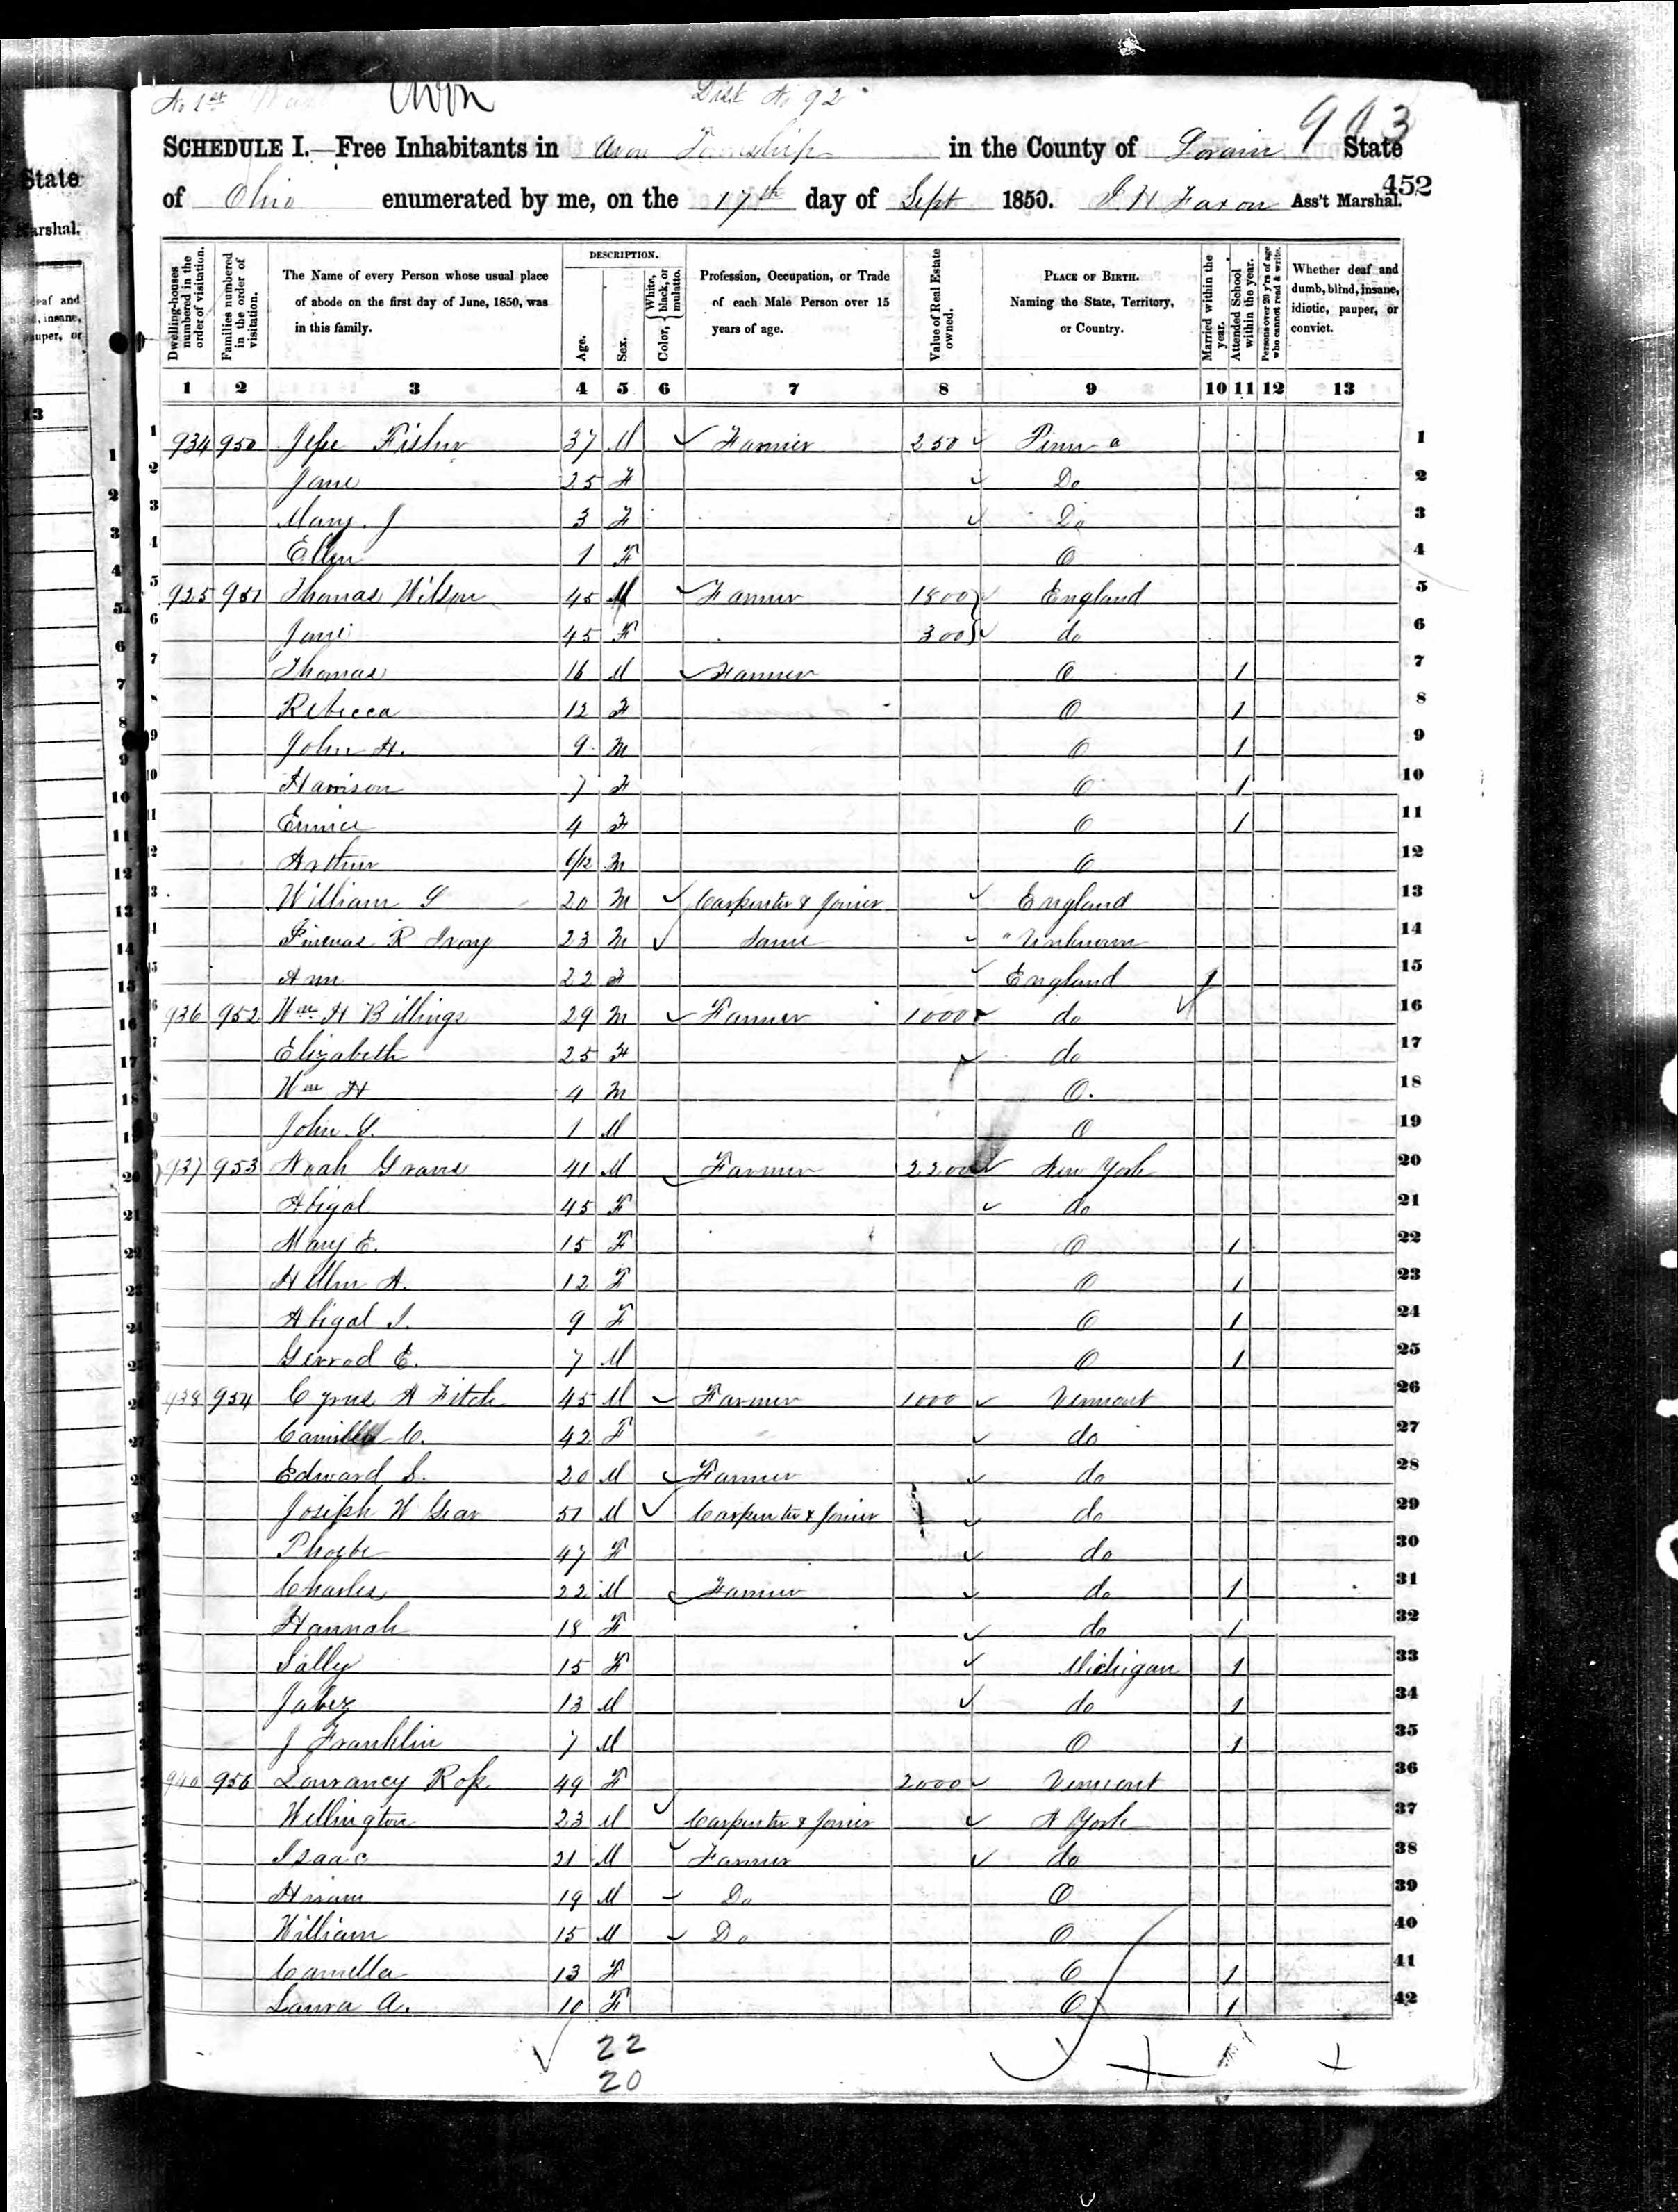 Avon
Dist No 92
903
SCHEDULE I.—Free Inhabitants in Avon Township in the County of Lorain State
of Ohio enumerated by me, on the 17th day of Sept 1850. Ass't Marshal.
452
Dwelling-houses numbered in the order of visitation.
Families numbered in the order of visitation.
The Name of every Person whose usual place of abode on the first day of June, 1850, was in this family.
DESCRIPTION.
Age.
Sex.
Color, { White, black, or mulatto.
Profession, Occupation, or Trade of each Male Person over 15 years of age.
Value of Real Estate owned.
PLACE OF BIRTH. Naming the State, Territory, or Country.
Married within the year.
Attended School within the year.
Persons over 20 y'rs of age who cannot read & write.
Whether deaf and dumb, blind, insane, idiotic, pauper, or convict.
1 2 3 4 5 6 7 8 9 10 11 12 13
1 934 950 Jesse Fisher 37 M Farmer 250 Penn a 1
2 Jane 25 F Do 2
3 Mary J 3 F Do 3
4 Ellen 1 F O 4
5 925 951 Thomas Wilson 45 M Farmer 1800 England 5
6 Jane 45 F 300 do 6
7 Thomas 16 M Farmer O 1 7
8 Rebecca 12 F O 1 8
9 John H. 9 M O 1 9
10 Harrison 7 F O 1 10
11 Eunice 4 F O 1 11
12 Arthur 6/12 M O 12
13 William G 20 M Carpenter & Joiner England 13
14 R 23 M Same " Unknown 14
15 Ann 22 F England 1 15
16 936 952 Wm H Billings 29 M Farmer 1000 do 16
17 Elizabeth 25 F do 17
18 Wm H 4 M O. 18
19 John G. 1 M O 19
20 937 953 Noah Graves 41 M Farmer 2200 New York 20
21 Abigal 45 F do 21
22 Mary E. 15 F O 1 22
23 Hellen A. 12 F O 1 23
24 Abigal J. 9 F O 1 24
25 Gerrod E. 7 M O 1 25
26 938 954 Cyrus A Fitch 45 M Farmer 1000 Vermont 26
27 Camilla C. 42 F do 27
28 Edward S. 20 M Farmer do 28
29 Joseph W Gear 51 M Carpenter & Joiner do 29
30 Phoebe 47 F do 30
31 Charles 22 M Farmer do 1 31
32 Hannah 18 F do 1 32
33 Sally 15 F Michigan 1 33
34 Jabez 13 M do 1 34
35 J Franklin 7 M O 1 35
36 940 956 Lourancy Ross 49 F 2000 Vermont 36
37 Wellington 23 M Carpenter & Joiner N York 37
38 Isaac 21 M Farmer do 38
39 Hiram 19 M Do O 39
40 William 15 M Do O 40
41 Camella 13 F O 1 41
42 Laura A. 10 F O 1 42
22
20